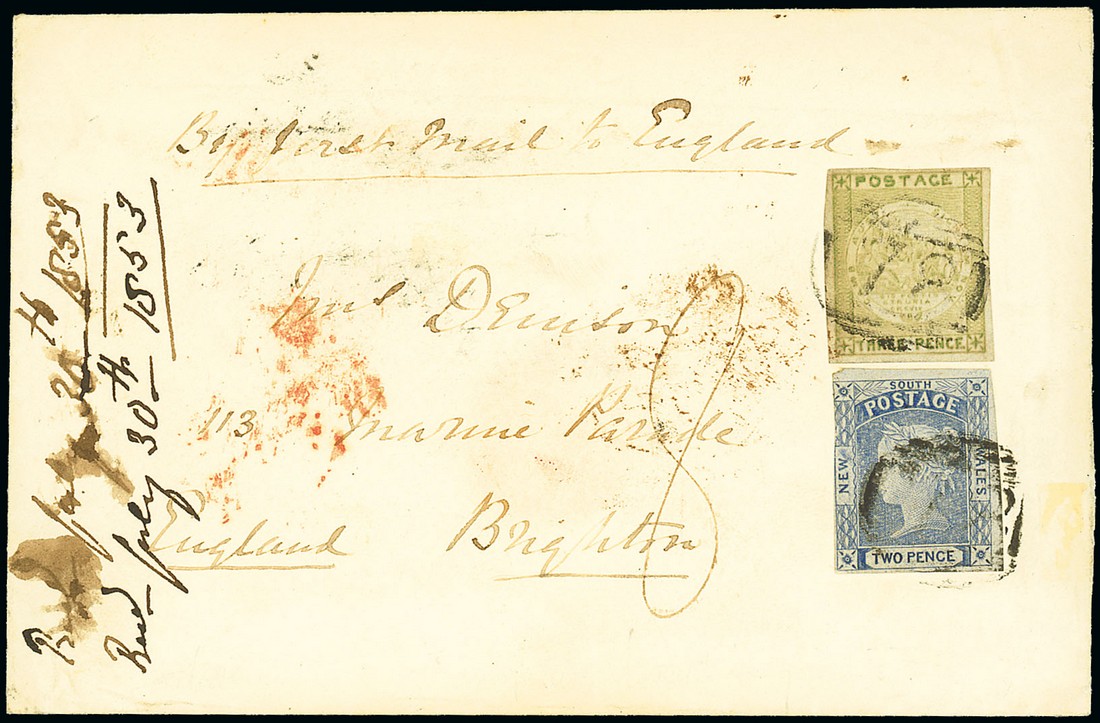 By first Mail to England
Mrs Denison
113 Marine Parade
England Brighton
8
July 1853
Recd July 30th 1853
POSTAGE
THREE PENCE
SOUTH
POSTAGE
NEW
WALES
TWO PENCE